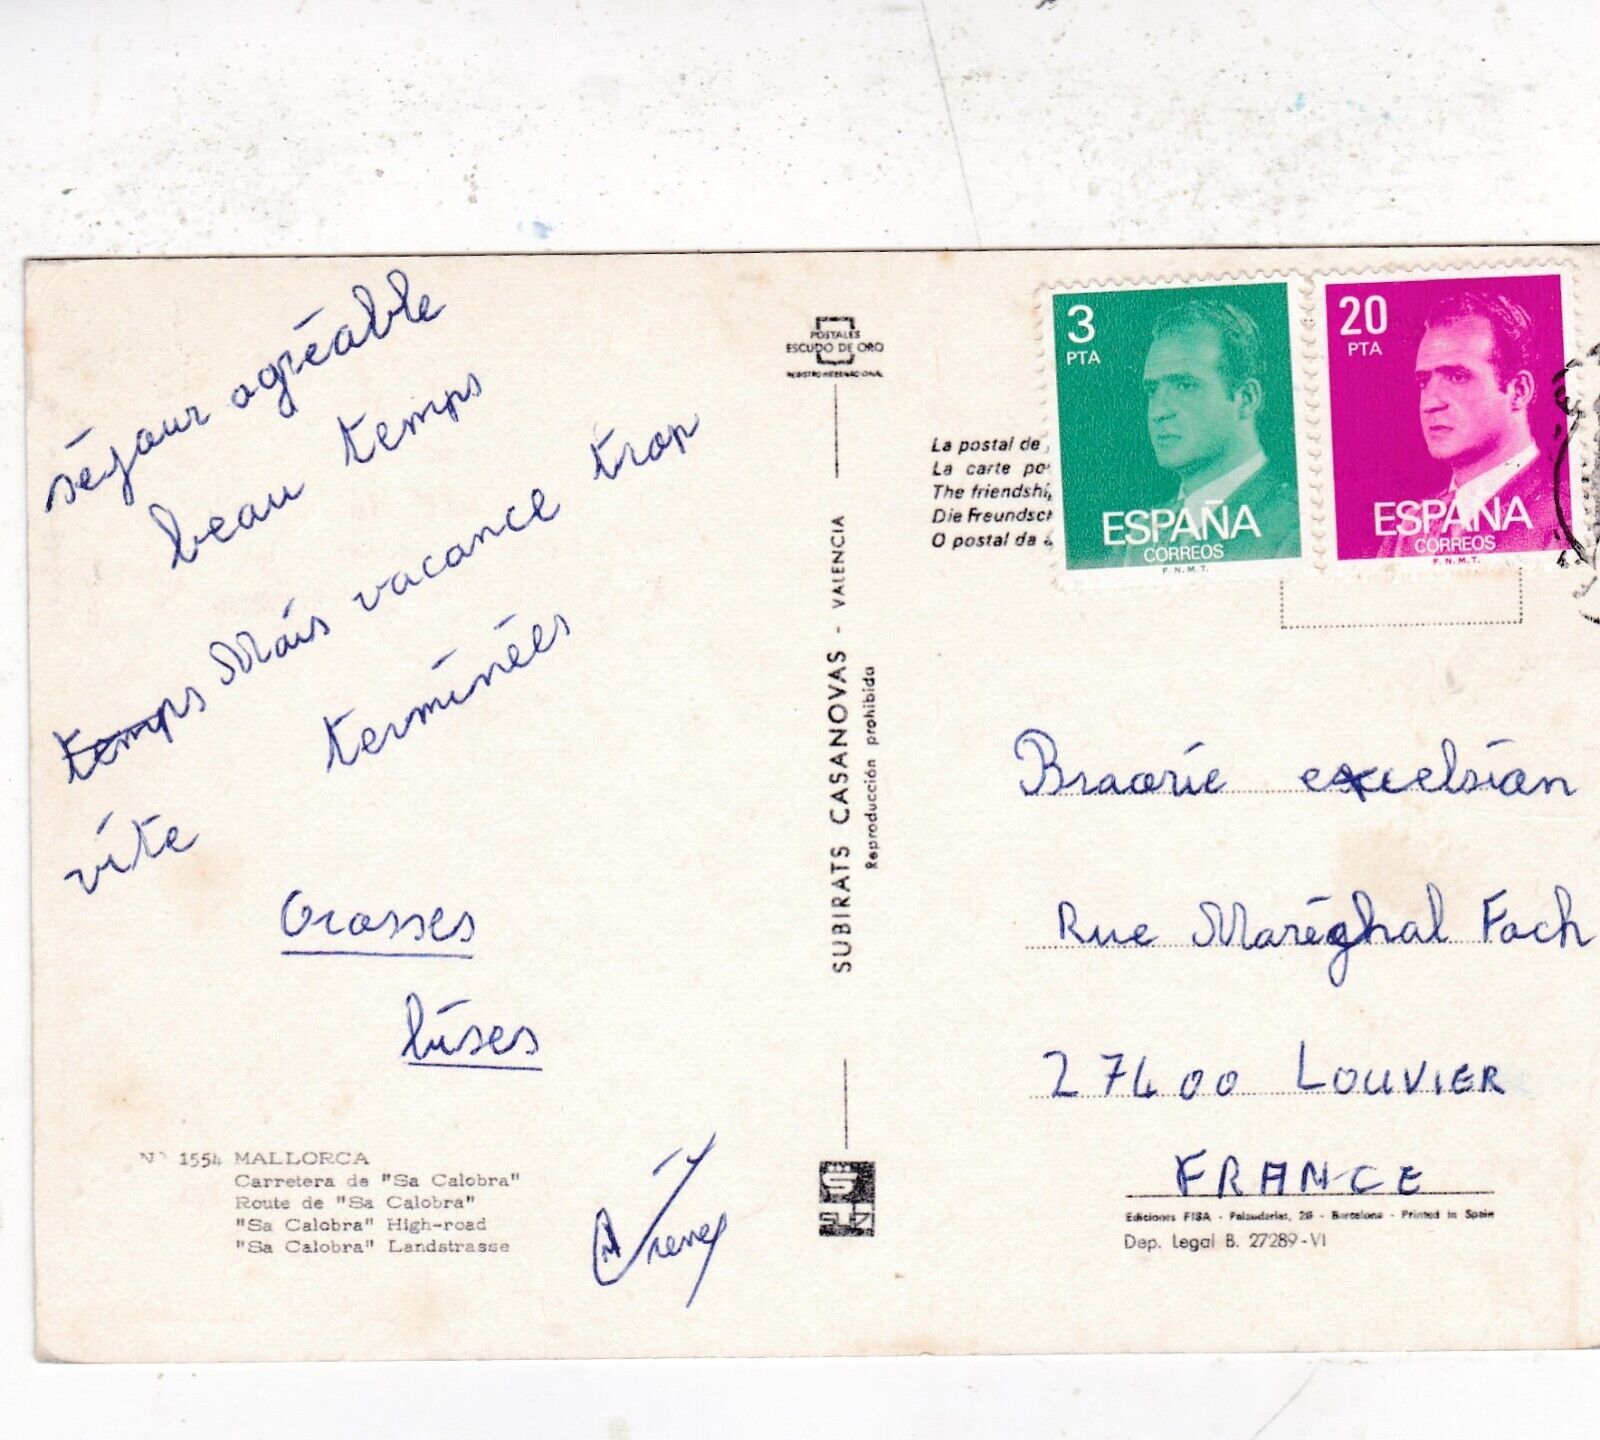 séjour agréable
beau temps
temps Mais vacance trop
terminées
vite
Grosses
bises
Nº 1554 MALLORCA
Carretera de "Sa Calobra"
Route de "Sa Calobra"
"Sa Calobra" High-road
"Sa Calobra" Landstrasse
POSTALES
ESCUDO DE ORO
REGISTRO INTERNACIONAL
SUBIRATS CASANOVAS - VALENCIA
Reproducción prohibida
La postal de
La carte po
The friendshi
Die Freundsch
O postal da a
3
PTA
ESPAÑA
CORREOS
F.N.M.T.
20
PTA
ESPAÑA
CORREOS
F.N.M.T.
excelsion
Rue Maréghal Foch
27400 LOUVIER
FRANCE
Ediciones FISA - Palaudarias, 26 - Barcelona - Printed in Spain
Dep. Legal B. 27289-VI